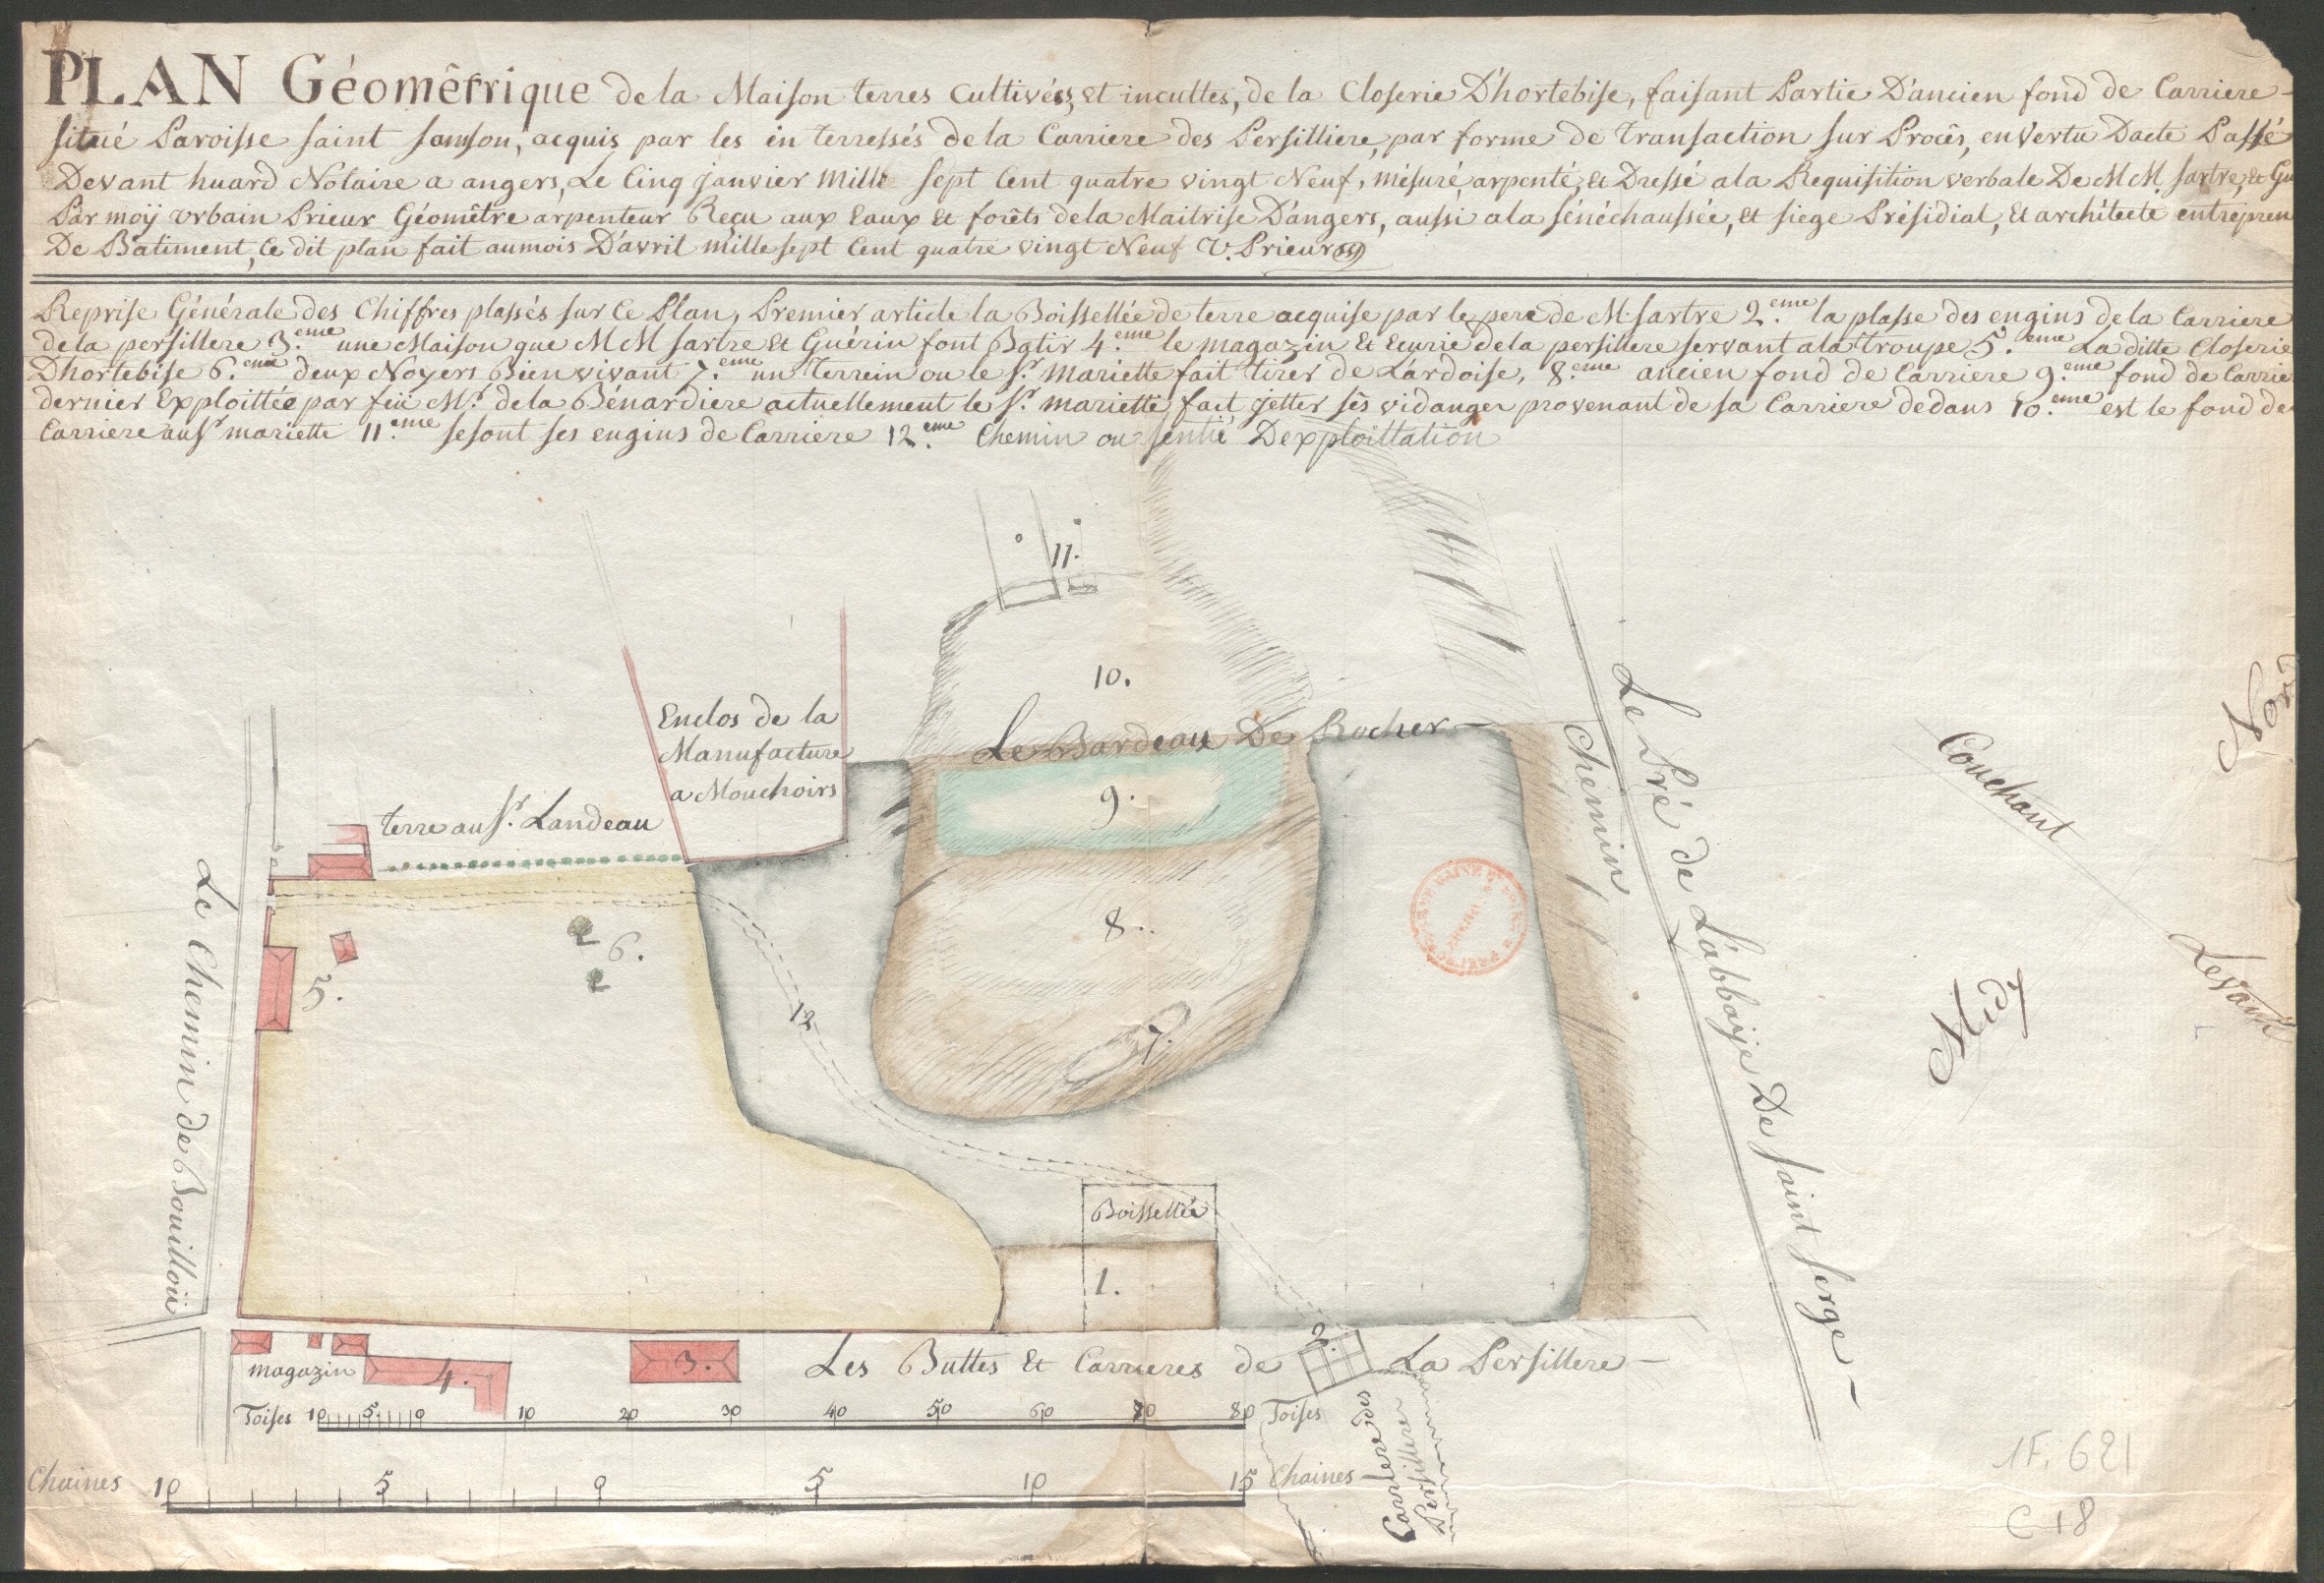 PLAN Géomêtrique de la Maison terres Cultivéés, et incultes, de la Closerie D'hortebise, faisant Partie D'ancien fond de Carriere -
situé Paroisse saint samson, acquis par les in terressés de la Carriere des Persilliere, par forme de transaction sur Procês, en Vertu Dacte Passé
Devant huard Notaire a angers, Le Cinq janvier Mille sept Cent quatre vingt Neuf, mésuré, arpenté, et Dressé a la Requisition verbale De M M. sartre, et Gu
Par moÿ Urbain Prieur Géomêtre arpenteur Reçu aux Eaux et forêts de la Maitrise D'angers, aussi a la sénéchaussée, et siege Présidial, et architecte entrepren
De Batiment, Ce dit plan fait au mois D'avril mille sept Cent quatre vingt Neuf U. Prieur
Reprise Générale des Chiffres plassés sur Ce Plan, Premier article la Boissellée de terre acquise par le pere de M. sartre 2.eme la plasse des engins de la Carriere
de la persillere 3.eme une Maison que M M sartre et Guérin font Batir 4.eme le magazin et Ecurie de la persillere servant a la troupe 5.eme La ditte Closerie
Dhortebise 6.eme deux Noyers Bien vivant 7.eme un terrein ou le Sr. Mariette fait tirer de L'ardoise, 8.eme ancien fond de Carriere 9.eme fond de Carrie
dernier Exploittée par feü Mr. de la Bénardiere actuellement le Sr. mariette, fait jetter sês vidanger provenant de sa Carriere dedans 10.eme est le fond de
Carriere au Sr mariette 11.eme se sont ses engins de Carriere 12.eme Chemin ou sentié Dexploittation
11.
10.
Enclos de la
Manufacture
a Mouchoirs
Le Bardeau De Rocher -
9.
terre au Sr. Landeau
8.
6.
5.
12
7.
Le Chemin de Bouilloü
Chemin
Le Pré de L'abbaÿe De saint serge -
Nord
Couchant
Levant
Midy
Boissellée
1.
2.
magazin
4.
3.
Les Buttes et Carrieres de La Persillere -
Toises 10 5 0 10 20 30 40 50 60 70 80 Toises
Chaines 10 5 0 5 10 15 Chaines
Carriere des
Persillere
1F. 621
C 18